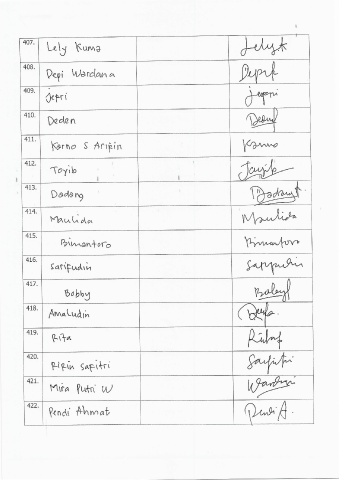 407. Lely Kuma Lelyk
408. Depi Wardana Depi
409. Jepri Jepri
410. Deden
411. Karno S Aripin Karno
412. Toyib Toyib
413. Dadang Dadang
414. Maulida Maulida
415. Bimantoro Bimantoro
416. Saripudin Saripudin
417. Bobby
418. Amaludin
419. Rita
420. Ripin Sapitri Sapitri
421. Mira Putri W Wardani
422. Pendi Ahmat Pendi A.